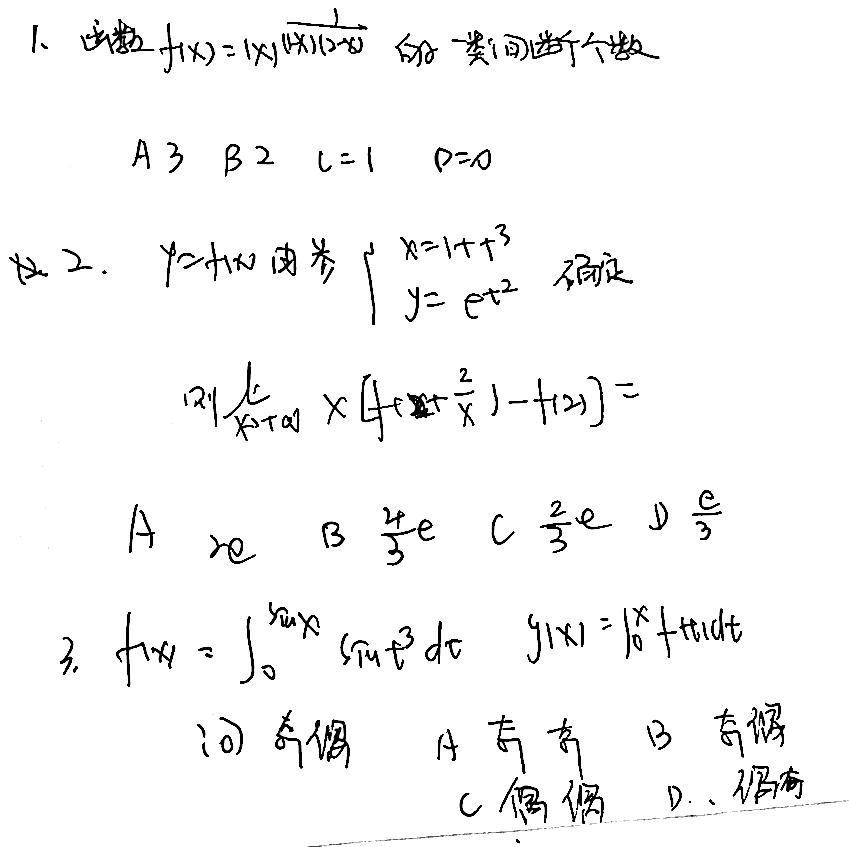 1、函数 f(x)=|x|^{\frac{1}{(1-x)(x-2)}} 的一类间断个数
A 3 B 2 C=1 D=0
2. y=f(x) 由参 { x=1+t^3
y=e^{t^2} 确定
则 \lim_{x→+∞} x[f(2+\frac{2}{x})-f(2)]=
A 2e B \frac{4}{3}e C \frac{2}{3}e D \frac{e}{3}
3. f(x)=\int_0^{sinx} sint^3dt g(x)=\int_0^x f(t)dt
问 奇偶 A 奇 奇 B 奇偶
C 偶 偶 D. 偶奇